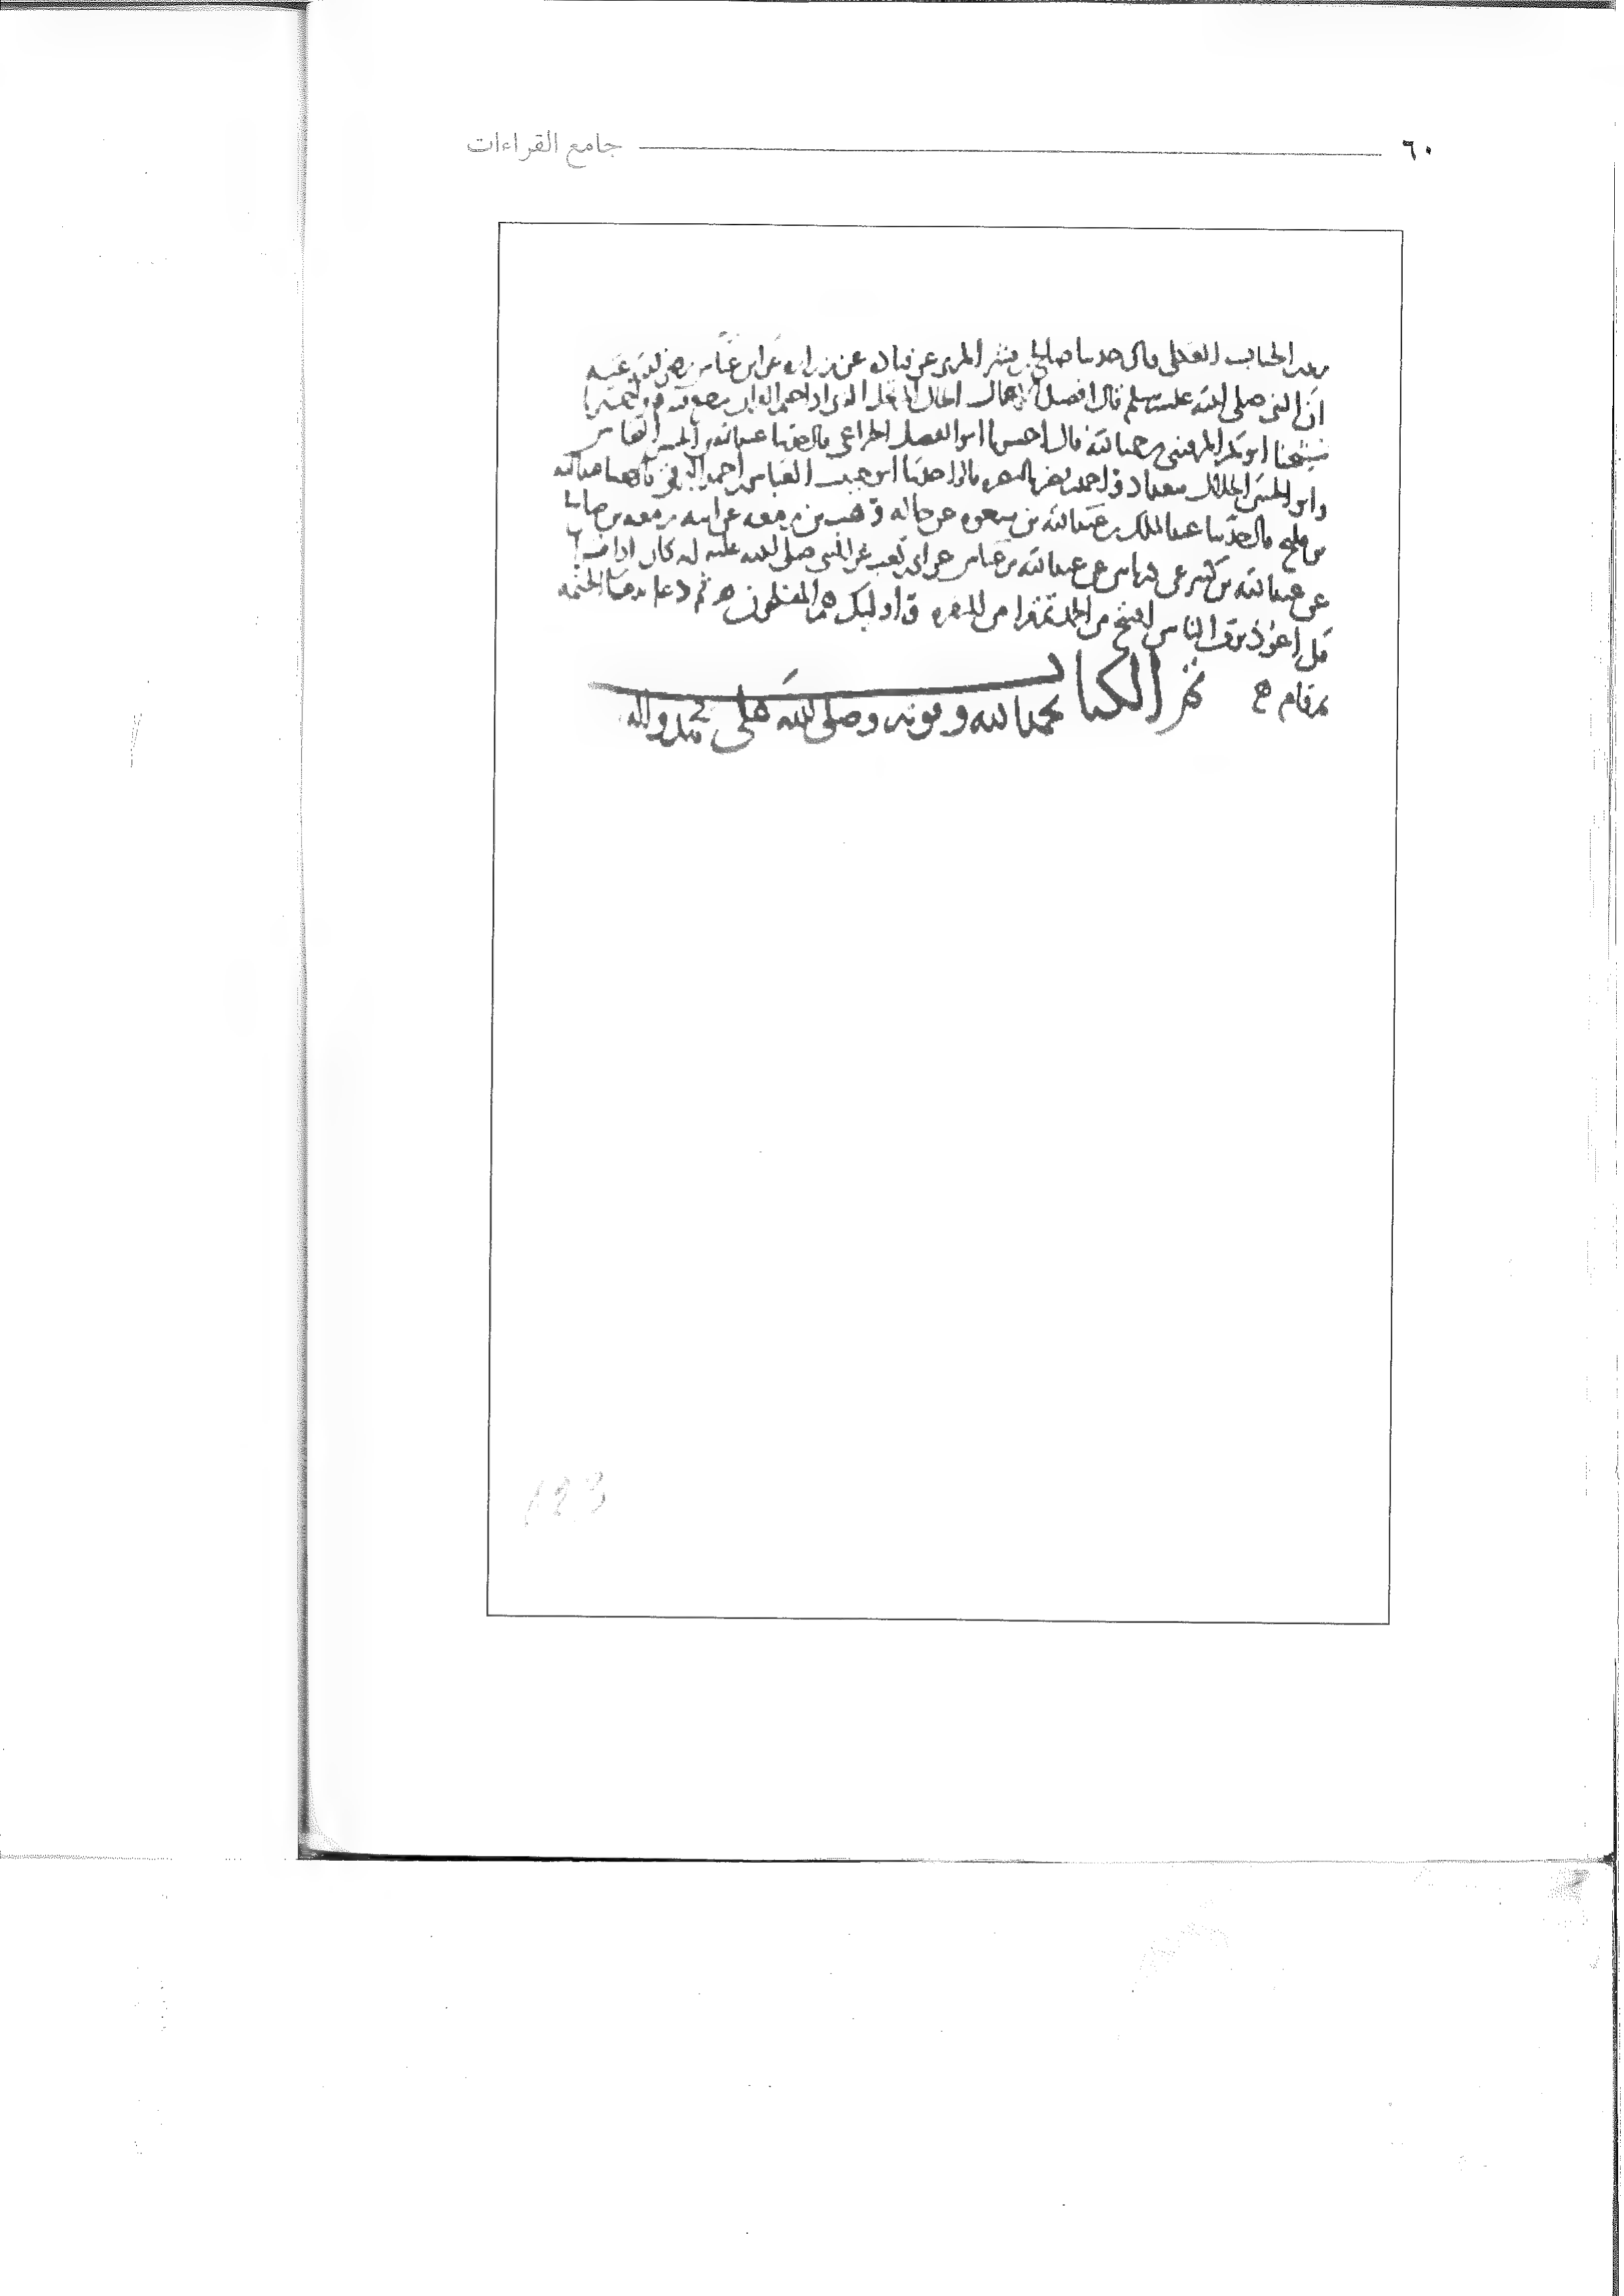 ٦٠ جامع القراءات
الحباب العكلي قال حدثنا صالح بن بشر المري عن قتادة عن زرارة عن ابن عباس رضي الله عنه
ان النبي صلى الله عليه وسلم قال افضل الاعمال الحال المرتحل الذي اذا
شيخنا ابو بكر المروزي رحمه الله قال اخبرنا ابو الفضل الخزاعي قال حدثنا عبد الله بن الحسن النخاس
وابو الحسن الخلال ببغداد واحمد بن نصر بالبصرة قالوا حدثنا ابو خبيب العباس بن احمد البرتي قال حدثنا عبد الله
قال حدثنا عبد الملك بن عبد الله بن سعوه عن خاله وهب بن زمعه عن ابيه زمعه بن صالح
عن عبد الله بن كثير عن درباس عن عبد الله بن عباس عن ابي بن كعب عن النبي صلى الله عليه انه كان اذا قرا
قل اعوذ برب الناس افتتح من الحمد ثم قرا من البقره واوليك هم المفلحون ثم دعا بدعا الختمه
ثم قام
تم الكتاب
بحمد الله وعونه وصلى الله على محمد واله
123